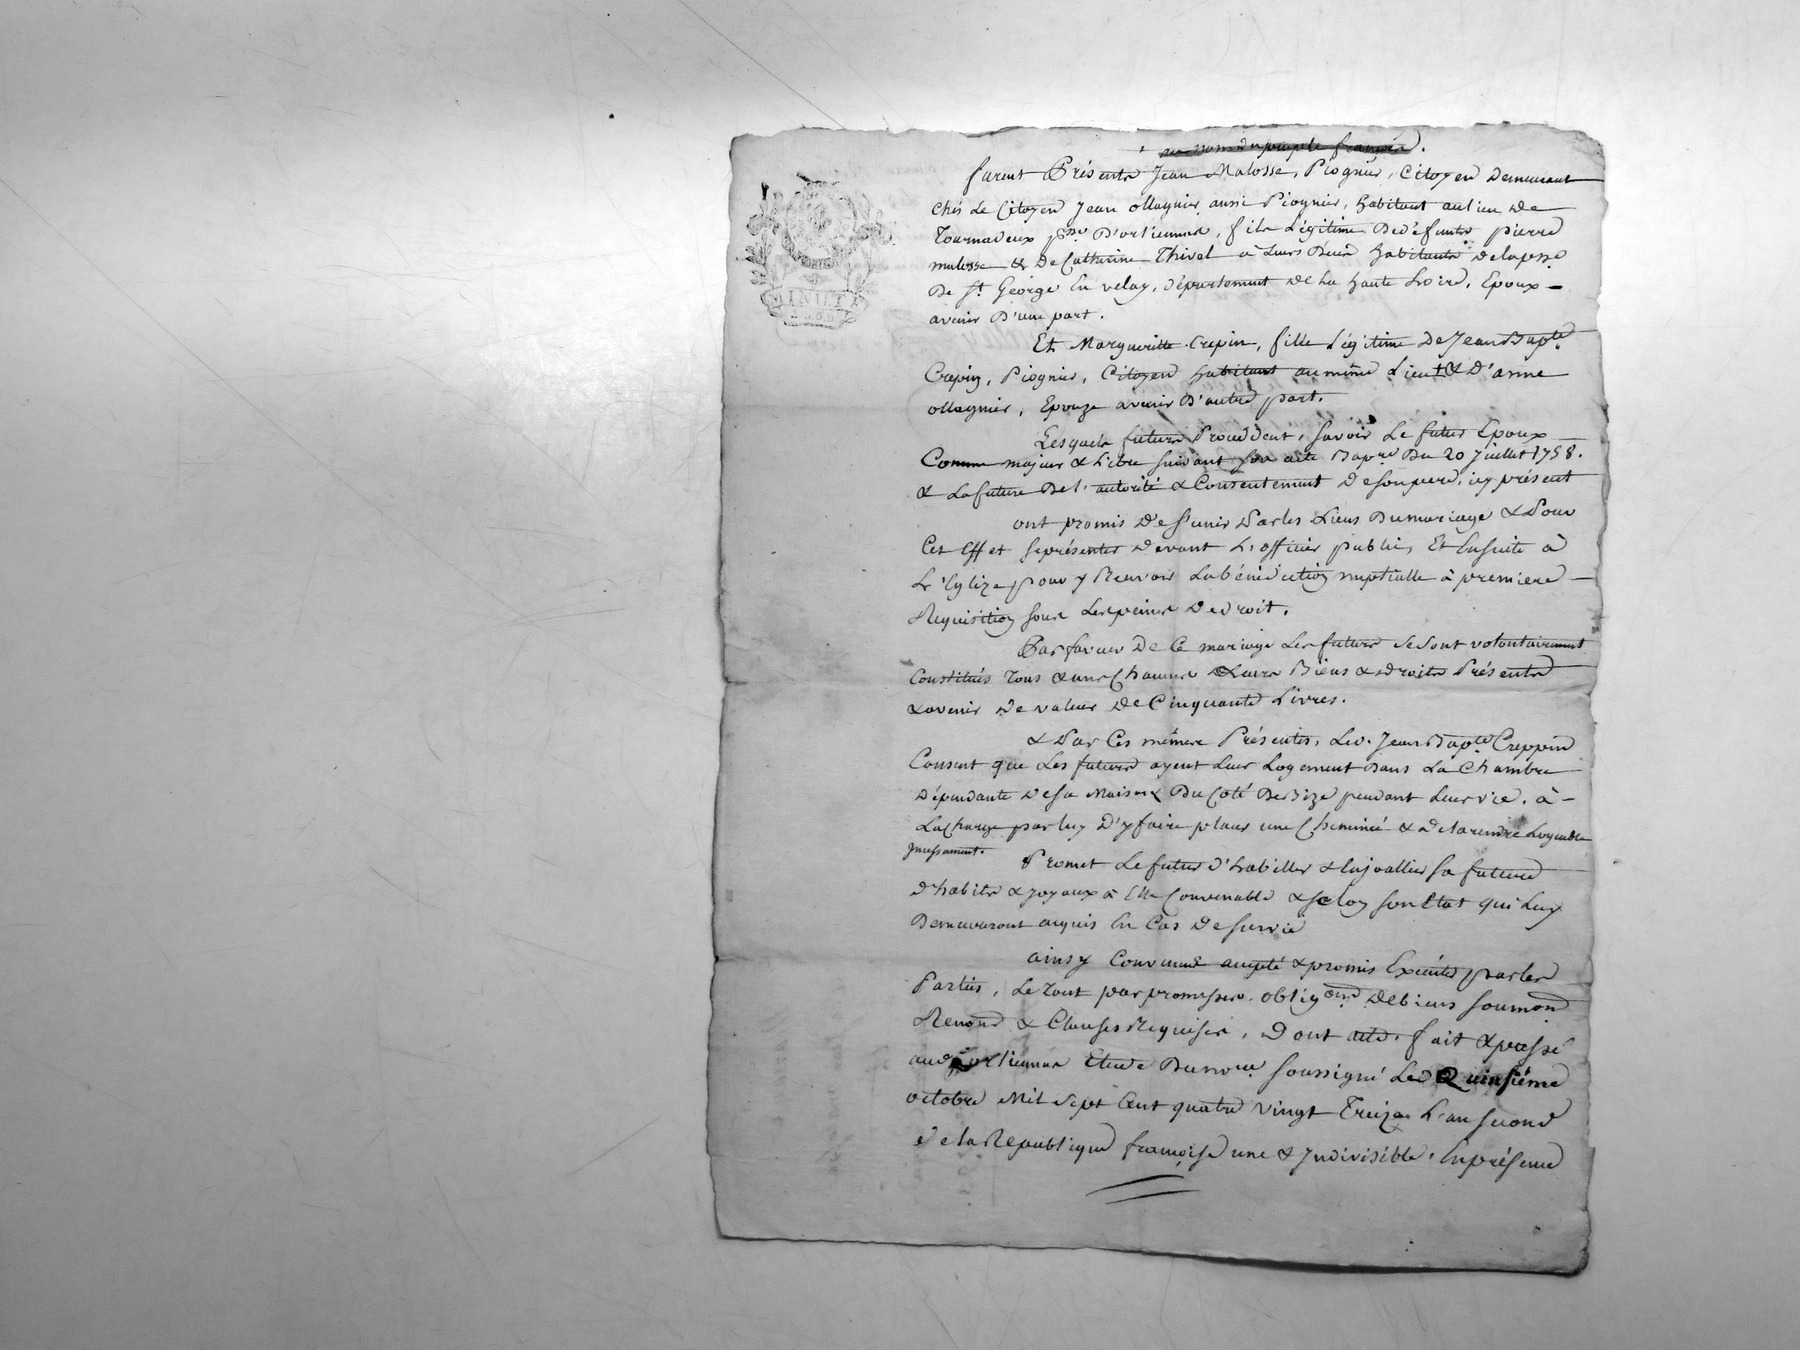 au nom du peuple françois.
furent Présents Jean Malosse, Piognier, Citoyen Demeurant
chés Le Citoyen Jean ollagnier aussi Piognier, habitant au lieu De
Tournadeux psse D'orliennas, fils Légitime De défunts pierre
malosse & De Catherine Thivel à Leurs Décès habitants de la psse
De St George En velay, département De La haute Loire, Epoux
avenir D'une part.
Et Marguerite Crepin, fille Légitime De Jean Bapte
Crepin, Piognier, Citoyen habitant au même Lieu & D'anne
ollagnier, Epouze avenir D'autre part.
Lesquels futurs Procèddent, savoir Le futur Epoux
Comme majeur & Libre suivant son acte Bapre Du 20 Juillet 1758.
& La future De l'autorité & Consentement De son pere, icy présent
ont promis De s'unir Par les Liens Du mariage & Pour
Cet Effet se présenter Devant L'officier public, Et Ensuite à
L'Eglize pour y Recevoir La bénédiction nuptialle à premiere
Requisition sous Les peines De droit.
Par faveur De Ce mariage Les futurs se sont volontairement
Constitués Tous & uns Chacuns Leurs Biens & droits Présents
& avenir De valeur De Cinquante Livres.
& Par Ces mêmes Présentes, Led. Jean Bapte Creppin
Consent que Les futurs ayent Leur Logement Dans La Chambre
Dépendante De sa Maison Du Coté De Bize pendant Leur vie, à
La Charge par luy D'y faire placer une Cheminée & De la rendre Logeable
Incessament.
Promet Le futur D'habiller & Enjoallier sa future
D'habits & Joyaux à Elle Convenable & selon son Etat qui Luy
Demeureront acquis En Cas De survie
ainsy Convenu accepté & promis Exécuter par les
Parties, Le Tout par promesses, obligons De biens soumons
Renons & Clauses Requises, Dont acte. fait & passé
aud. orliennas Etude Du nore soussigné Le Quinsième
octobre Mil Sept Cent quatre vingt Treize L'an second
de la République françoise une & Indivisible, En présence
MINUTE